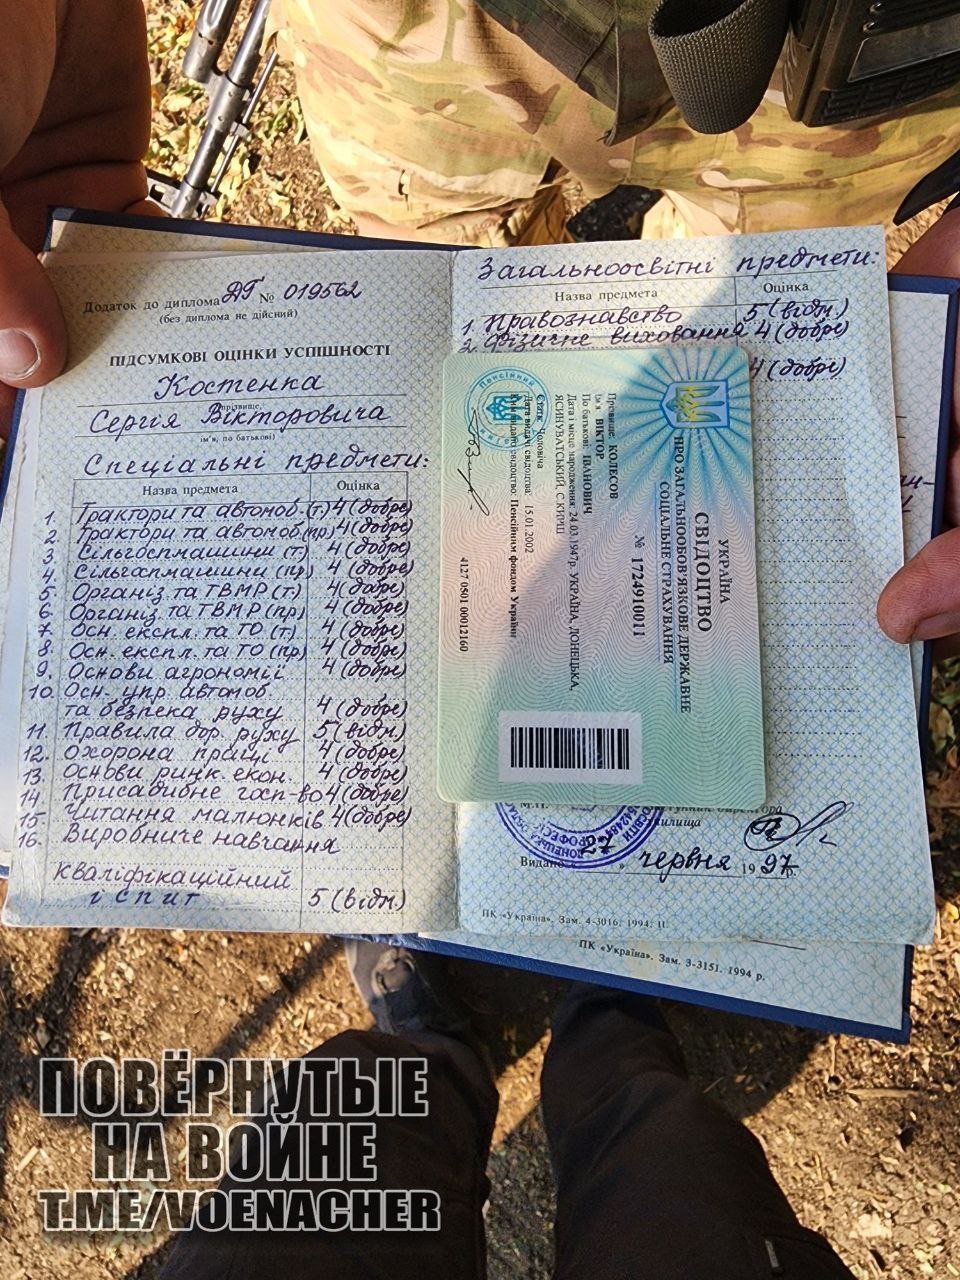 Додаток до диплома ДГ № 019562
(без диплома не дійсний)
ПІДСУМКОВІ ОЦІНКИ УСПІШНОСТІ
Костенка
прізвище,
Сергія Вікторовича
ім'я, по батькові)
Спеціальні предмети:
Назва предмета Оцінка
1. Трактори та автомоб. (т.) 4 (добре)
2. Трактори та автомоб (пр) 4 (добре)
3. Сільгоспмашини (т) 4 (добре)
4. Сільгоспмашини (пр) 4 (добре)
5. Організ. та ТВМР (т) 4 (добре)
6. Організ та ТВМР (пр) 4 (добре)
7. Осн. експл. та ТО (т) 4 (добре)
8. Осн. експл. та ТО (пр) 4 (добре)
9. Основи агрономії 4 (добре)
10. Осн. упр. автомоб.
та безпека руху 4 (добре)
11. Правила дор. руху 5 (відм)
12. Охорона праці 4 (добре)
13. Основи ринк. екон. 4 (добре)
14. Присадибне госп-во 4 (добре)
15. Читання малюнків 4 (добре)
16. Виробниче навчання
Кваліфікаційний
іспит 5 (відм.)
Загальноосвітні предмети:
Назва предмета Оцінка
1. Правознавство 5 (відм.)
2. Фізичне виховання 4 (добре)
4 (добре)
УКРАЇНА
СВІДОЦТВО
ПРО ЗАГАЛЬНООБОВ'ЯЗКОВЕ ДЕРЖАВНЕ
СОЦІАЛЬНЕ СТРАХУВАННЯ
№ 1724910011
Прізвище: КОЛЕСОВ
Ім'я ВІКТОР
По батькові: ІВАНОВИЧ
Дата і місце народження: 24.03.1947р. УКРАЇНА, ДОНЕЦЬКА,
ЯСИНУВАТСЬКИЙ,
Стать Чоловіча
Дата видачі свідоцтва: 15.01.2002
Ким видано свідоцтво: Пенсійним фондом України
4127 0801 00012160
Пенсійний
М.П. директора
училища
Видано 27 » червня 1997р.
ПК «Україна». Зам. 4-3016. 1994. II.
ПК «Україна». Зам. 3-3151. 1994 р.
ПОВЁРНУТЫЕ
НА ВОЙНЕ
T.ME/VOENACHER